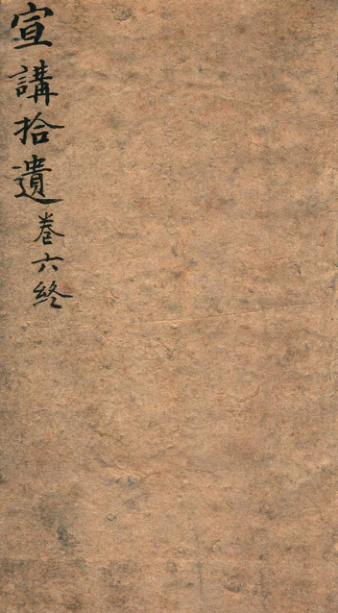 宣講拾遺卷六終